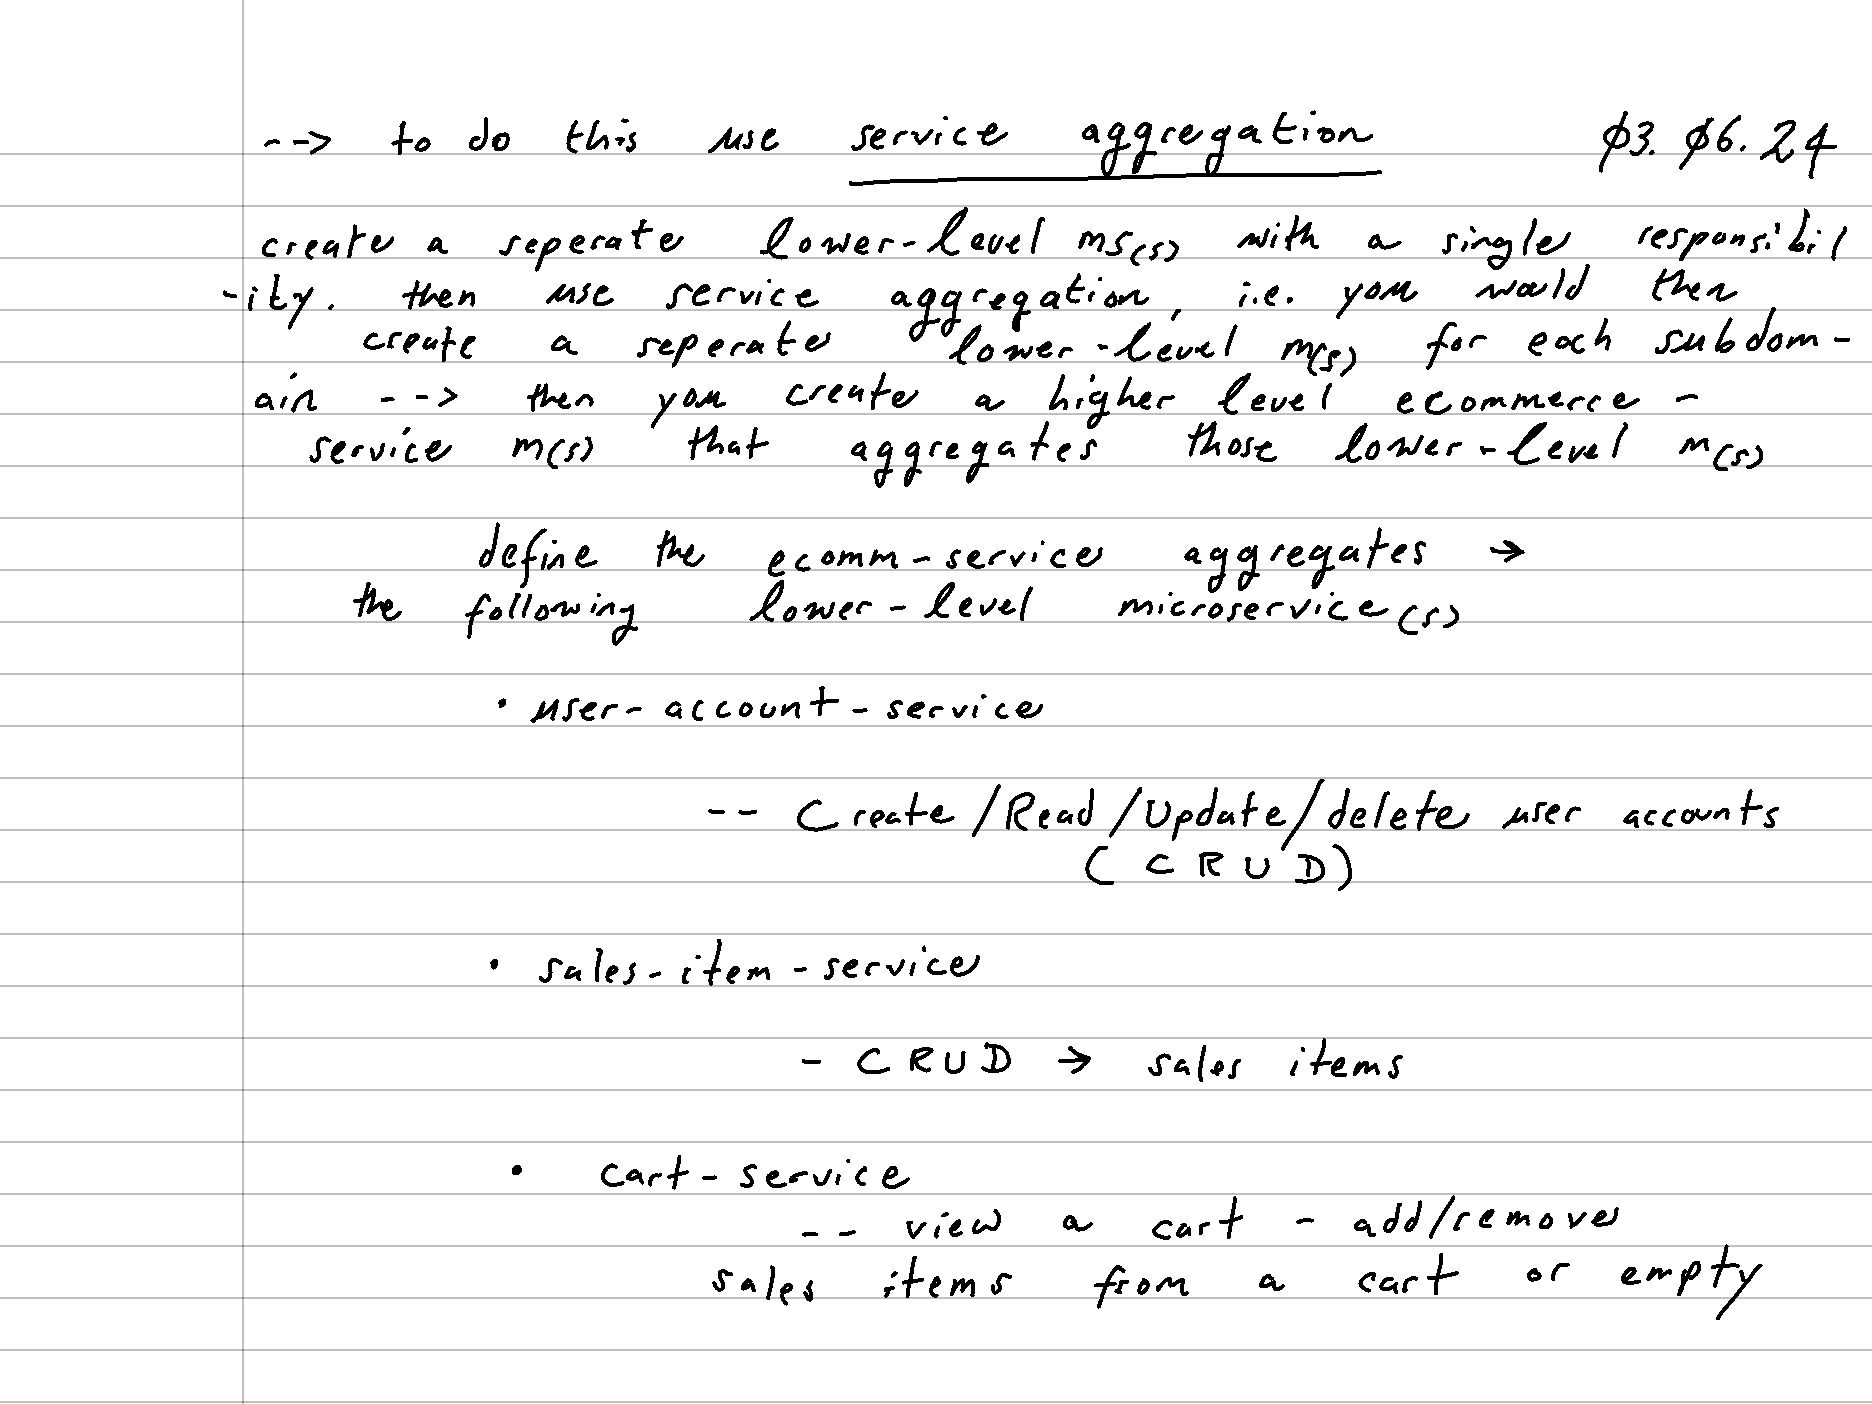 --> to do this use service aggregation 03. 06. 24
create a seperate lower-level ms(s) with a single responsibil
-ity. then use service aggregation, i.e. you would then
create a seperate lower-level m(s) for each subdom-
ain --> then you create a higher level ecommerce -
service m(s) that aggregates those lower-level m(s)
define the ecomm-service aggregates →
the following lower-level microservice(s)
• user-account-service
-- Create/Read/Update/delete user accounts
(CRUD)
• sales-item-service
- CRUD → sales items
• cart-service
-- view a cart - add/remove
sales items from a cart or empty